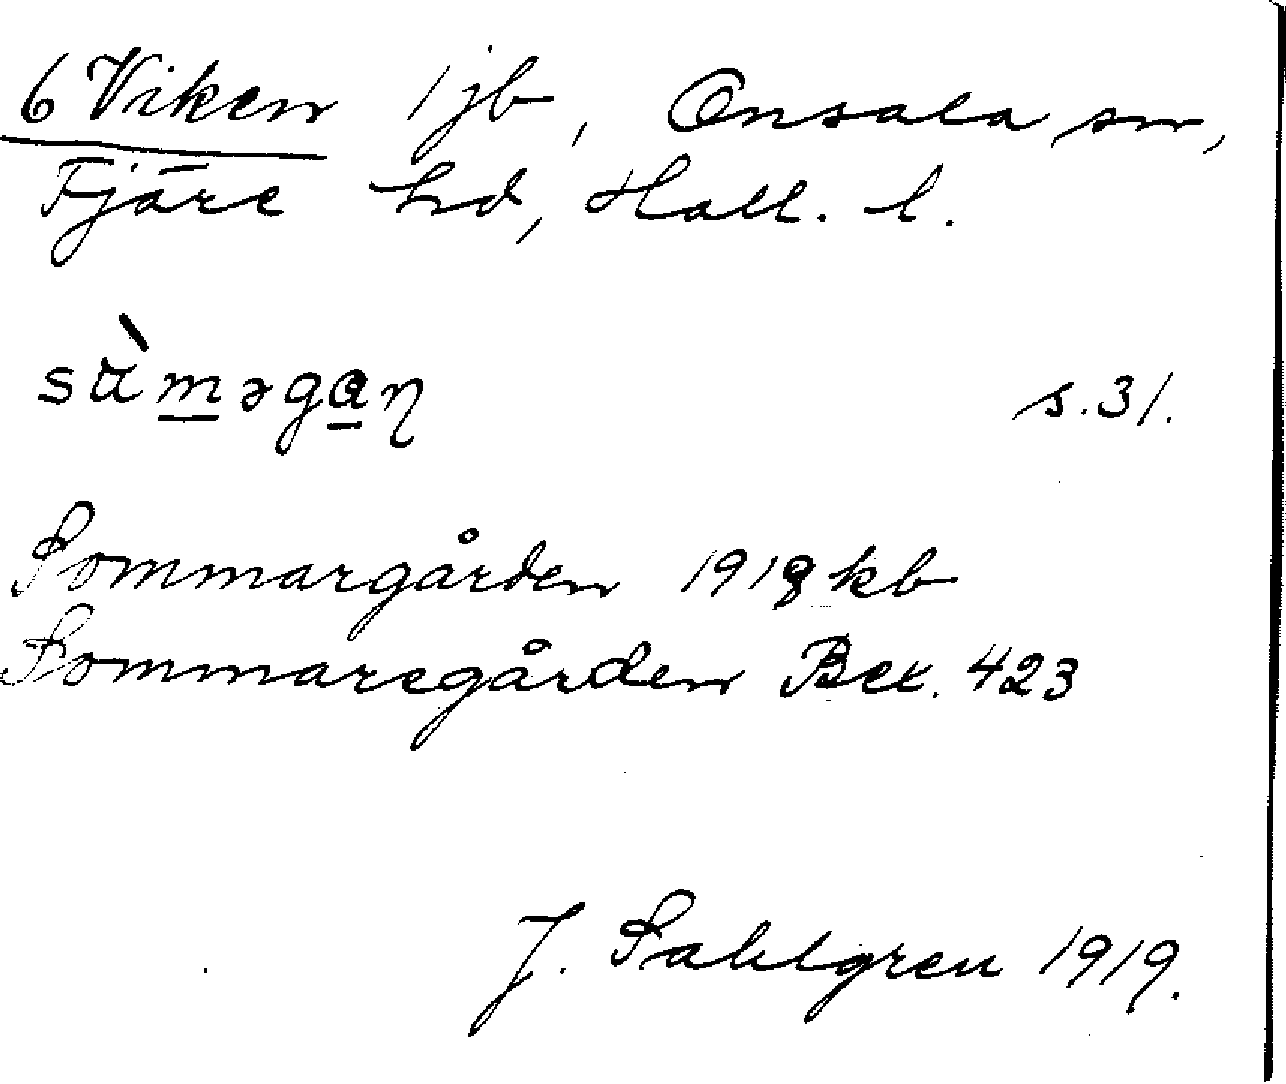 6 Viken 1 jb, Onsala sn,
Fjäre hd, Hall. l.
s.31.
Sommargården 1919 kb
Sommaregården Bex. 423
J. Sahlgren 1919.